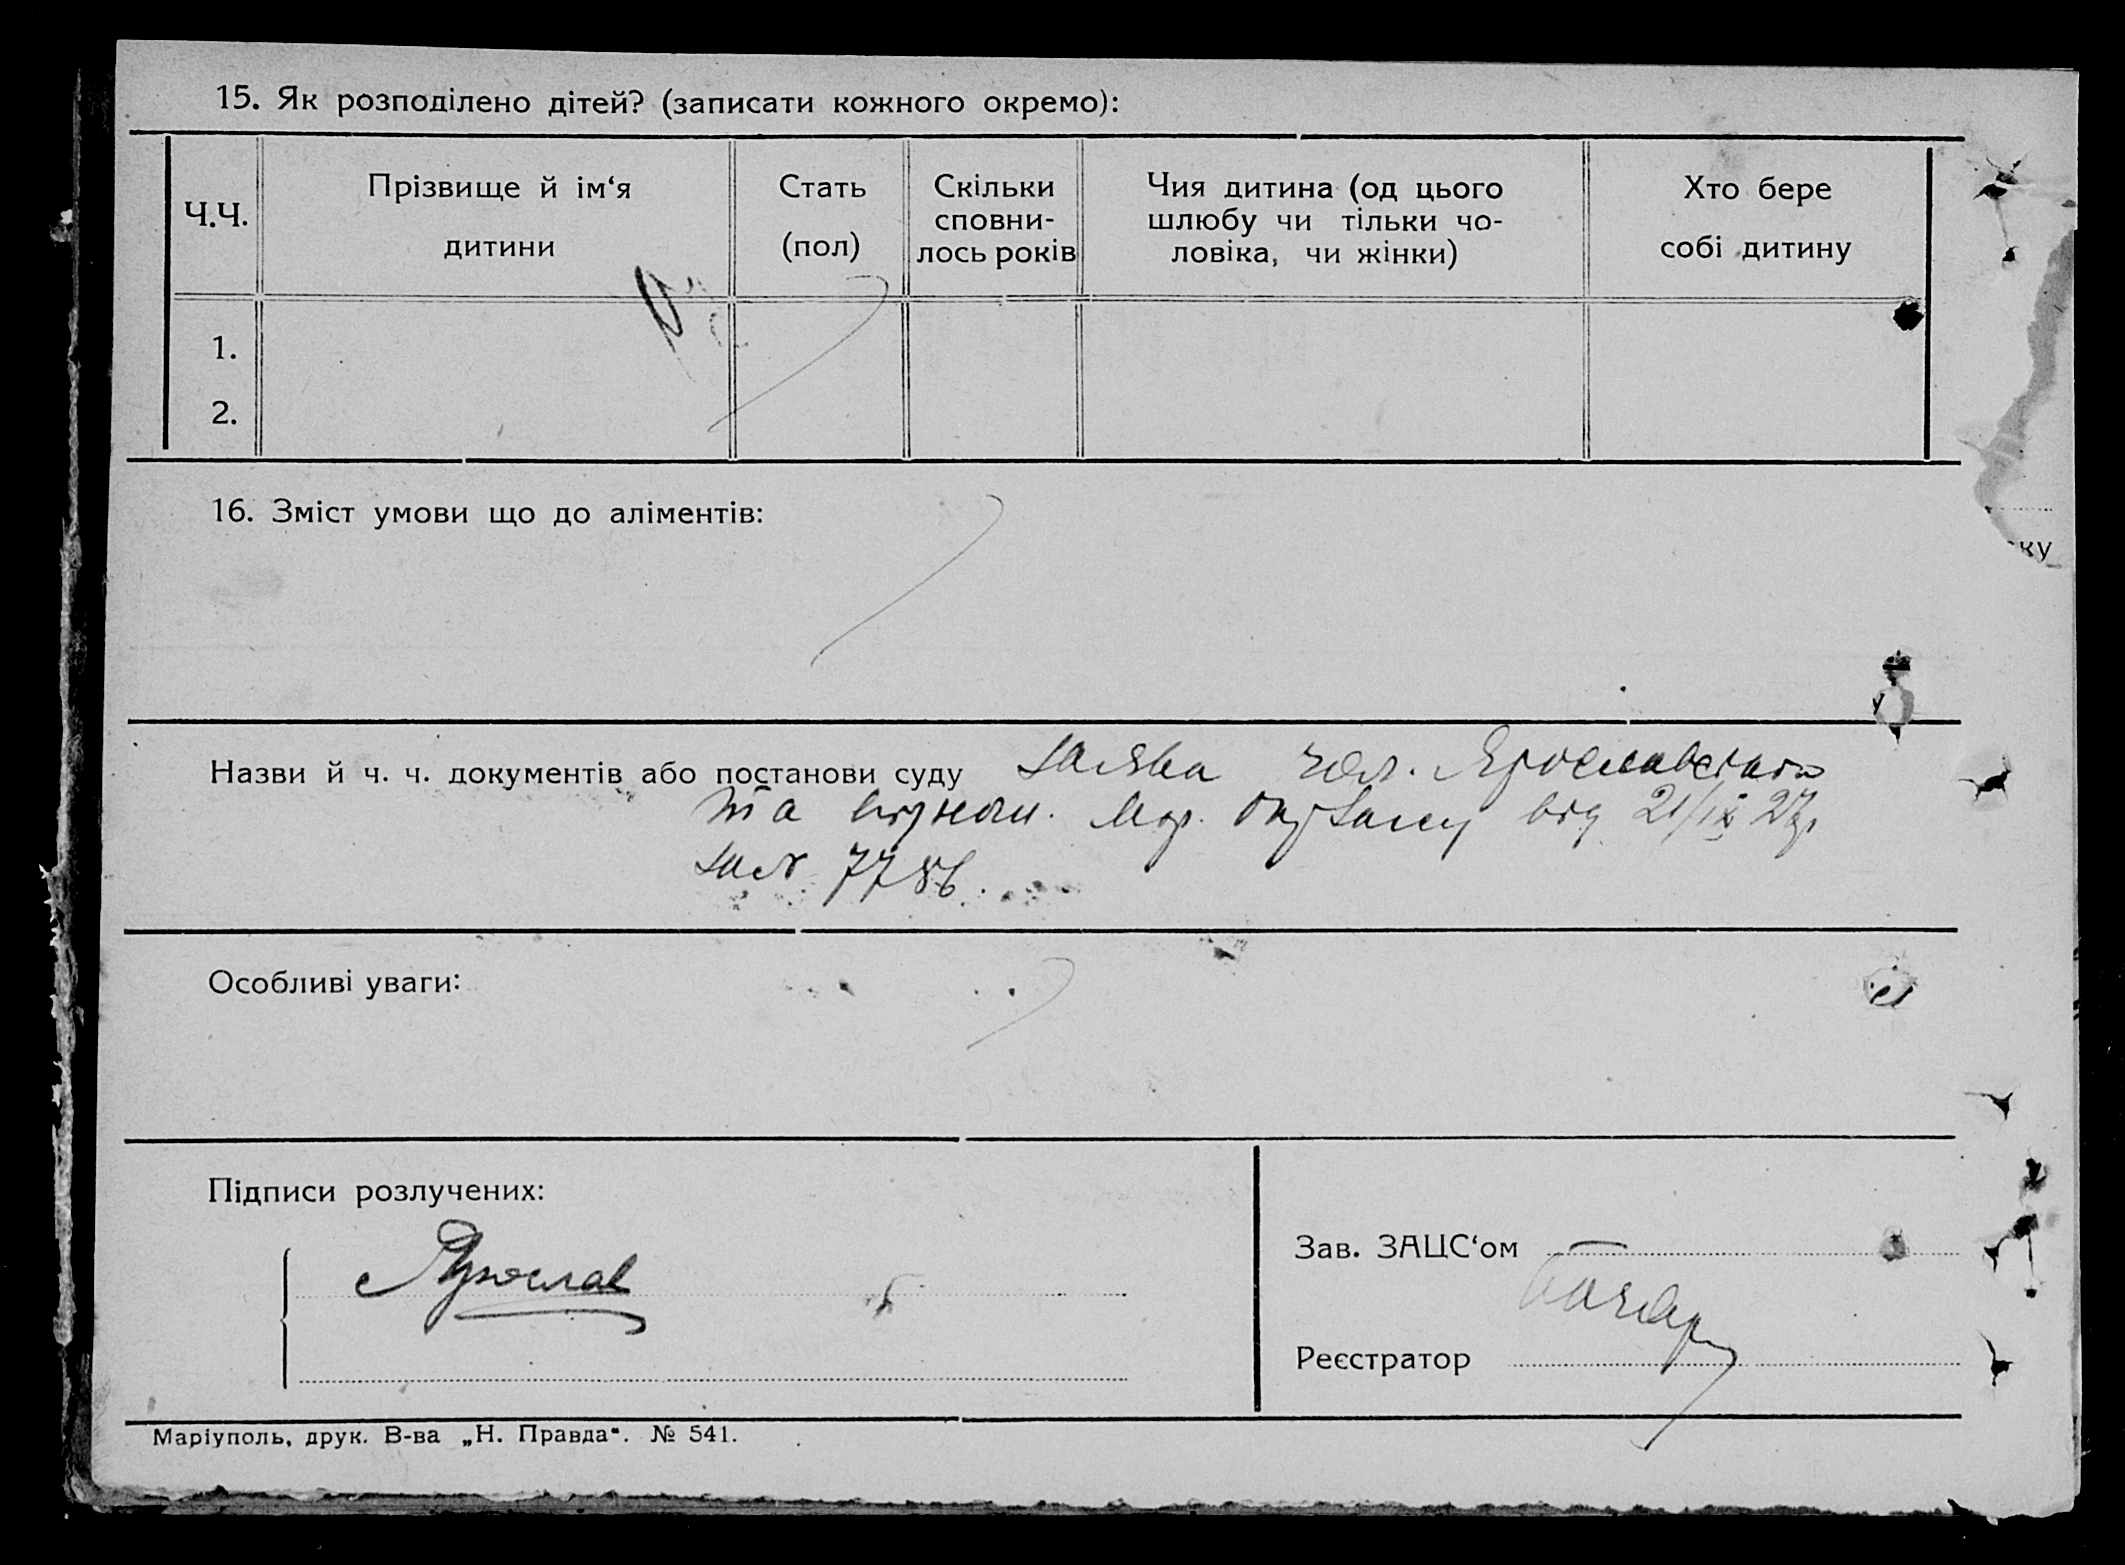 15. Як розподілено дітей? (записати кожного окремо):
Ч.Ч.
Прізвище й ім‘я
дитини
Стать
(пол)
Скільки
сповни-
лось років
Чия дитина (од цього
шлюбу чи тільки чо-
ловіка, чи жінки)
Хто бере
собі дитину
1.
2.
16. Зміст умови що до аліментів:
ку
Назви й ч. ч. документів або постанови суду заява чол. Ярославского
та від 21/IX 27р.
за № 7786.
Особливі уваги:
Підписи розлучених:
Ярослав
Зав. ЗАЦС‘ом
Реєстратор
Маріуполь, друк. В-ва „Н. Правда“. № 541.